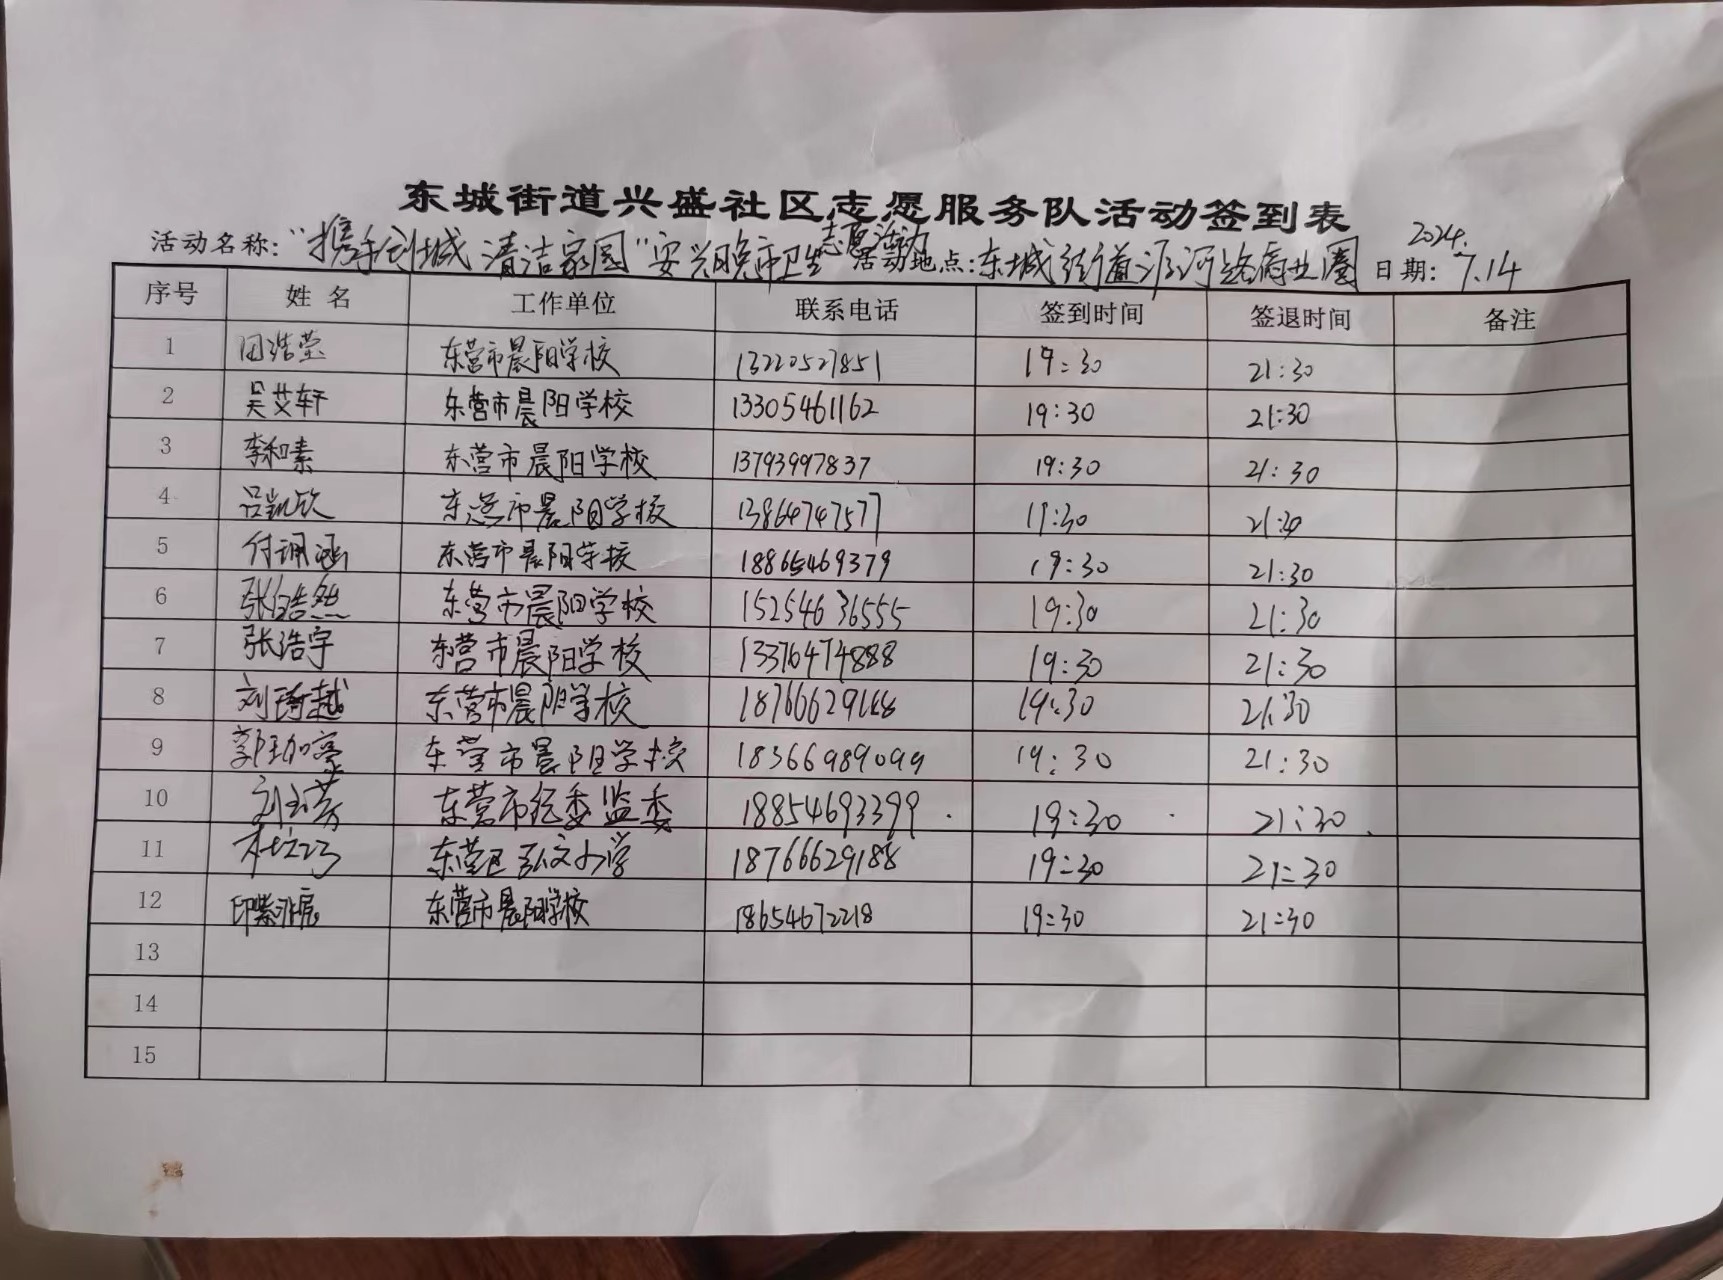 东城街道兴盛社区志愿服务队活动签到表
活动名称："携手创城 清洁家园"安兴晚市卫生志愿活动 活动地点：东城街道沂河路商业圈 日期：2024.7.14
序号 姓名 工作单位 联系电话 签到时间 签退时间 备注
1 田浩莹 东营市晨阳学校 13220527851 19:30 21:30
2 吴艾轩 东营市晨阳学校 13305461162 19:30 21:30
3 李和素 东营市晨阳学校 13793997837 19:30 21:30
4 吕凯欣 东营市晨阳学校 13864747577 19:30 21:30
5 付诩涵 东营市晨阳学校 18865469379 19:30 21:30
6 张皓然 东营市晨阳学校 15254636555 19:30 21:30
7 张浩宇 东营市晨阳学校 13376474888 19:30 21:30
8 刘琦越 东营市晨阳学校 19:30 21:30
9 郭珈豪 东营市晨阳学校 18366989099 19:30 21:30
10 东营市纪委监委 18854693399 19:30 21:30
11 东营区弘文小学 18766629188 19:30 21:30
12 东营市晨阳学校 18654672218 19:30 21:30
13
14
15